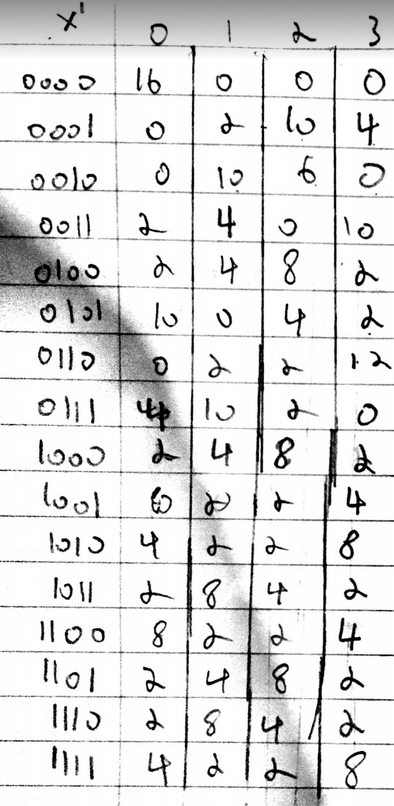 X' 0 1 2 3
0000 16 0 0 0
0001 0 2 10 4
0010 0 10 6 0
0011 2 4 0 10
0100 2 4 8 2
0101 10 0 4 2
0110 0 2 2 12
0111 4 10 2 0
1000 2 4 8 2
1001 2 4
1010 4 2 2 8
1011 2 8 4 2
1100 8 2 2 4
1101 2 4 8 2
1110 2 8 4 2
1111 4 2 2 8